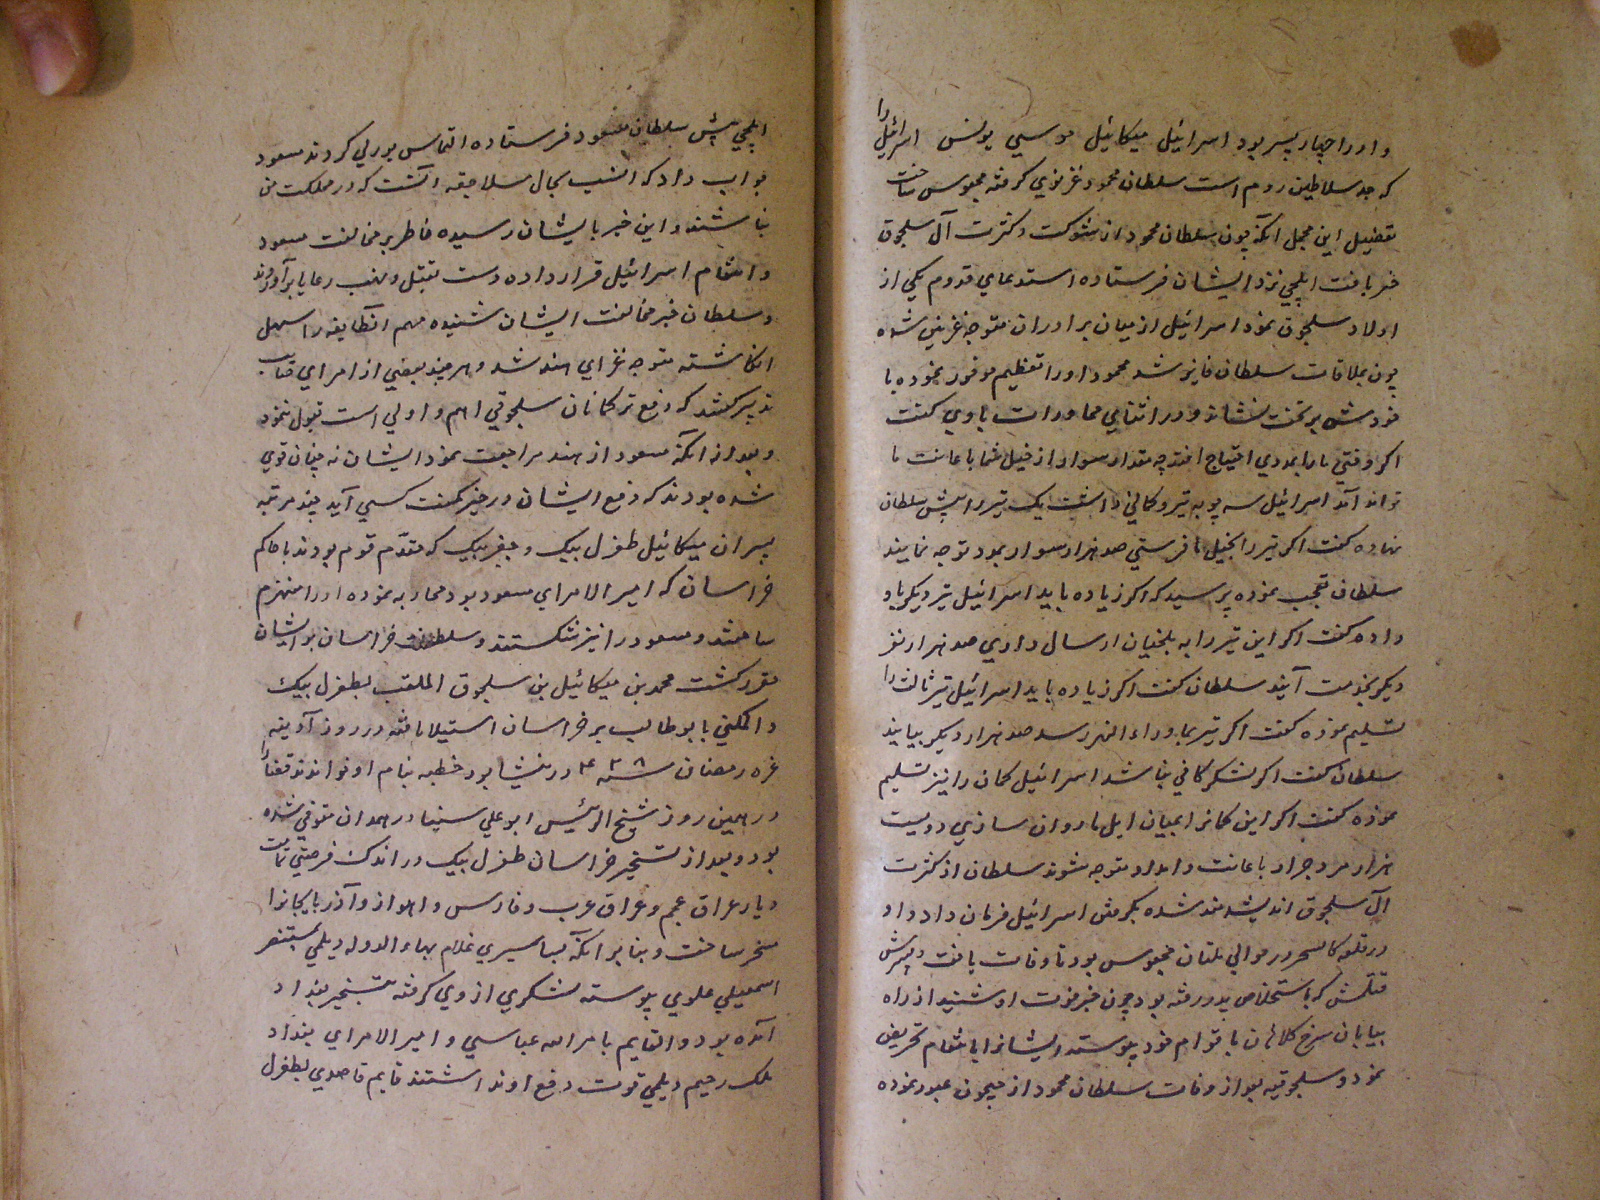 و او را چهار پسر بود اسرائیل میکائیل موسی یونس اسرائیل را
که جد سلاطین روم است سلطان محمود غزنوی کرفته محبوس ساخت
تفصیل این مجمل آنکه چون سلطان محمود از شوکت و کثرت آل سلجوق
خبر یافت ایلچی نزد ایشان فرستاده استدعای قدوم یکی از
اولاد سلجوق نمود اسرائیل از میان برادران متوجه غزنین شده
چون بملاقات سلطان فایز شد محمود او را تعظیم موفور نموده با
خودش بر تخت نشاند و در اثنای محاورات با وی کفت
اکر وقتی ما را بمددی احتیاج افتد چه مقدار سوار از خیل شما باعانت ما
تواند آمد اسرائیل سه چوبه تیر و کمانی داشت یک تیر را پیش سلطان
نهاده کفت اکر تیر را بخیل ما فرستی صد هزار سوار بمدد توجه نمایند
سلطان تعجب نموده پرسید که اکر زیاده باید اسرائیل تیر دیکر باو
داده کفت اکر این تیر را به بلخیان ارسال داری صد هزار نفر
دیکر بخدمت آیند سلطان کفت اکر زیاده باید اسرائیل تیر ثالث را
تسلیم نموده کفت اکر تیر بماوراء النهر رسد صد هزار دیکر بیایند
سلطان کفت اکر لشکر کافی نباشد اسرائیل کمان را نیز تسلیم
نموده کفت اکر این کمانرا بمیان ایل ما روان سازی دویست
هزار مرد جرار باعانت و امداد متوجه شوند سلطان از کثرت
آل سلجوق اندیشه مند شده بکرفتن اسرائیل فرمان داد و او
در قلعه کالنجر در حوالی ملتان محبوس بود تا وفات یافت و پسرش
قتلمش که باستخلاص پدر رفته بود چون خبر فوت او شنید از راه
بیابان سرخ کلاهان باقوام خود پیوسته ایشانرا بانتقام تحریض
نمود و سلجوقیه بعد از وفات سلطان محمود از جیحون عبور نموده
ایلچی پیش سلطان مسعود فرستاده التماس یورتی کردند مسعود
جواب داد که انسب بحال سلاجقه آنست که در مملکت من
نباشند و این خبر بایشان رسیده خاطر بر مخالفت مسعود
و انتقام اسرائیل قرار داده دست بقتل و نهب رعایا برآوردند
و سلطان خبر مخالفت ایشان شنیده مهم آنطایفه را سهل
انکاشته متوجه غزای هند شد و هر چند بعضی از امرای صاحب
تدبیر کفتند که دفع ترکمانان سلجوقی اهم و اولی است قبول ننمود
و بعد از آنکه مسعود از هند مراجعت نمود ایشان نه چنان قوی
شده بودند که دفع ایشان در حیز مکنت کسی آید چند مرتبه
پسران میکائیل طغرل بیک و جغر بیک که مقدّم قوم بودند با حاکم
خراسان که امیر الامرای مسعود بود محاربه نموده او را منهزم
ساختند و مسعود را نیز شکستند و سلطنت خراسان بر ایشان
مقرر کشت محمد بن میکائیل بن سلجوق الملقب بطغرل بیک
و المکنی بابو طالب بر خراسان استیلا یافته در روز آدینه
غره رمضان سنه ۴۲۸ در نیشابور خطبه بنام او خواندند قضا را
در همین روز شیخ الرئیس ابو علی سینا در همدان متوفی شده
بود و بعد از تسخیر خراسان طغرل بیک در اندک فرصتی
دیار عراق عجم و عراق عرب و فارس و اهواز و آذربایجانرا
مسخر ساخت و بنا بر آنکه بساسیری غلام بهاء الدوله دیلمی بمستنصر
اسمعیلی علوی پیوسته لشکری از وی کرفته بتسخیر بغداد
آمده بود و القایم بامر الله عباسی و امیر الامرای بغداد
ملک رحیم دیلمی قوت دفع او نداشتند قایم قاصدی بطغرل